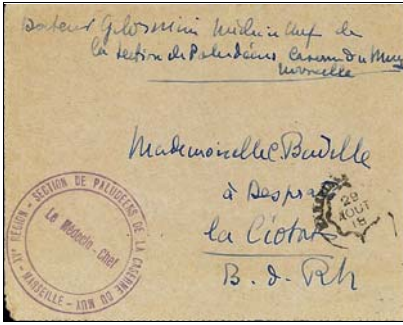 Docteur Médecin Chef de
la section de Paludéens Caserne du Muy
Marseille
Mademoiselle
à
la Ciotat
B. d. Rh
29
AOUT
18
XVe REGION - SECTION DE PALUDÉENS DE LA CASERNE DU MUY
MARSEILLE
Le Médecin-Chef